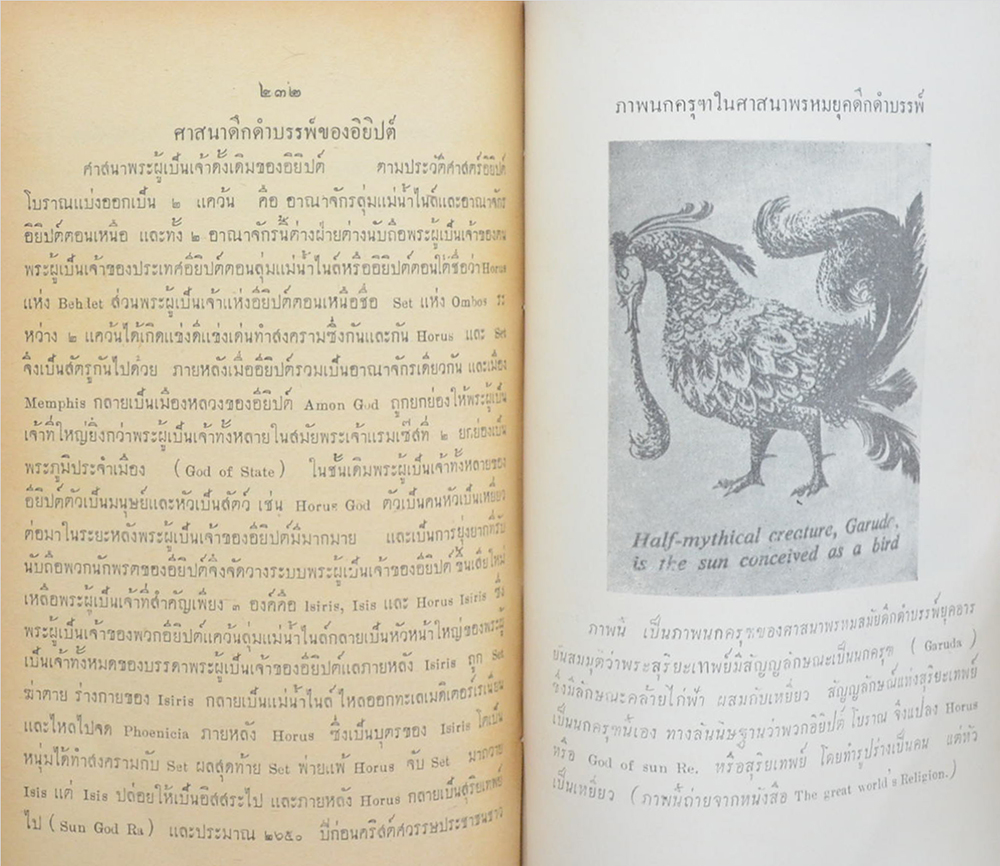 ๒๓๒
ศาสนาดึกดำบรรพ์ของอิยิปต์
ศาสนาพระผู้เป็นเจ้าดั้งเดิมของอิยิปต์ ตามประวัติศาสตร์อิยิปต์
โบราณแบ่งออกเป็น ๒ แคว้น คือ อาณาจักรลุ่มแม่น้ำไนล์และอาณาจักร
อิยิปต์ตอนเหนือ และทั้ง ๒ อาณาจักรนี้ต่างฝ่ายต่างนับถือพระผู้เป็นเจ้าของตน
พระผู้เป็นเจ้าของประเทศอิยิปต์ตอนลุ่มแม่น้ำไนล์หรืออิยิปต์ตอนใต้ชื่อว่า Horus
แห่ง Behdet ส่วนพระผู้เป็นเจ้าแห่งอิยิปต์ตอนเหนือชื่อ Set แห่ง Ombos ระ
หว่าง ๒ แคว้นได้เกิดแข่งดีแข่งเด่นทำสงครามซึ่งกันและกัน Horus และ Set
จึงเป็นสัตรูกันไปด้วย ภายหลังเมื่ออิยิปต์รวมเป็นอาณาจักรเดียวกัน และเมือง
Memphis กลายเป็นเมืองหลวงของอิยิปต์ Amon God ถูกยกย่องให้พระผู้เป็น
เจ้าที่ใหญ่ยิ่งกว่าพระผู้เป็นเจ้าทั้งหลายในสมัยพระเจ้าแรมเซ๊สที่ ๒ ยกย่องเป็น
พระภูมิประจำเมือง (God of State) ในชั้นเดิมพระผู้เป็นเจ้าทั้งหลายของ
อิยิปต์ตัวเป็นมนุษย์และหัวเป็นสัตว์ เช่น Horus God ตัวเป็นคนหัวเป็นเหยี่ยว
ต่อมาในระยะหลังพระผู้เป็นเจ้าของอิยิปต์มีมากมาย และเป็นการยุ่งยากที่รับ
นับถือพวกนักพรตของอิยิปต์จึงจัดวางระบบพระผู้เป็นเจ้าของอิยิปต์ ขึ้นเสียใหม่
เหลือพระผู้เป็นเจ้าที่สำคัญเพียง ๓ องค์คือ Isiris, Isis และ Horus Isiris ซึ่ง
พระผู้เป็นเจ้าของพวกอิยิปต์แคว้นลุ่มแม่น้ำไนล์กลายเป็นหัวหน้าใหญ่ของพระผู้
เป็นเจ้าทั้งหมดของบรรดาพระผู้เป็นเจ้าของอิยิปต์และภายหลัง Isiris ถูก Set
ฆ่าตาย ร่างกายของ Isiris กลายเป็นแม่น้ำไนล์ ไหลออกทะเลเมดิเตอร์เรเนียน
และไหลไปจด Phoenicia ภายหลัง Horus ซึ่งเป็นบุตรของ Isiris โตเป็น
หนุ่มได้ทำสงครามกับ Set ผลสุดท้าย Set พ่ายแพ้ Horus จับ Set มาถวาย
Isis แต่ Isis ปล่อยให้เป็นอิสสระไป และภายหลัง Horus กลายเป็นสุริยเทพย์
ไป (Sun God Ra) และประมาณ ๒๖๕๐ ปีก่อนคริสต์ศวรรษประชาชนชาว
ภาพนกครุฑในศาสนาพรหมยุคดึกดำบรรพ์
Half-mythical creature, Garuda,
is the sun conceived as a bird
ภาพนี้ เป็นภาพนกครุฑของศาสนาพรหมสมัยดึกดำบรรพ์ยุคอาร
ยันสมมุติว่าพระสุริยะเทพย์มีสัญญลักษณะเป็นนกครุฑ (Garuda)
ซึ่งมีลักษณะคล้ายไก่ฟ้า ผสมกับเหยี่ยว สัญญลักษณ์แห่งสุริยะเทพย์
เป็นนกครุฑนี้เอง ทางสันนิษฐานว่าพวกอิยิปต์ โบราณ จึงแปลง Horus
หรือ God of sun Re. หรือสุริยเทพย์ โดยทำรูปร่างเป็นคน แต่หัว
เป็นเหยี่ยว (ภาพนี้ถ่ายจากหนังสือ The great world's Religion.)